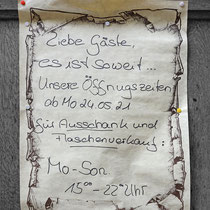 Liebe Gäste,
es ist soweit...
Unsere Öffnungszeiten
ab Mo 24.05.21
für Ausschank und
Flaschenverkauf:
Mo-Son
15⁰⁰ - 22⁰⁰ Uhr